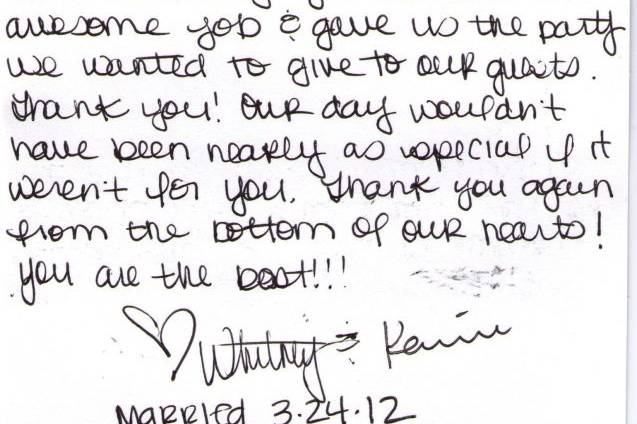 awesome job & gave us the party
we wanted to give to our guests.
Thank you! Our day wouldn't
have been nearly as special if it
weren't for you. Thank you again
from the bottom of our hearts!
you are the best!!!
♡ Whitney & Kevin
MARRIED 3.24.12